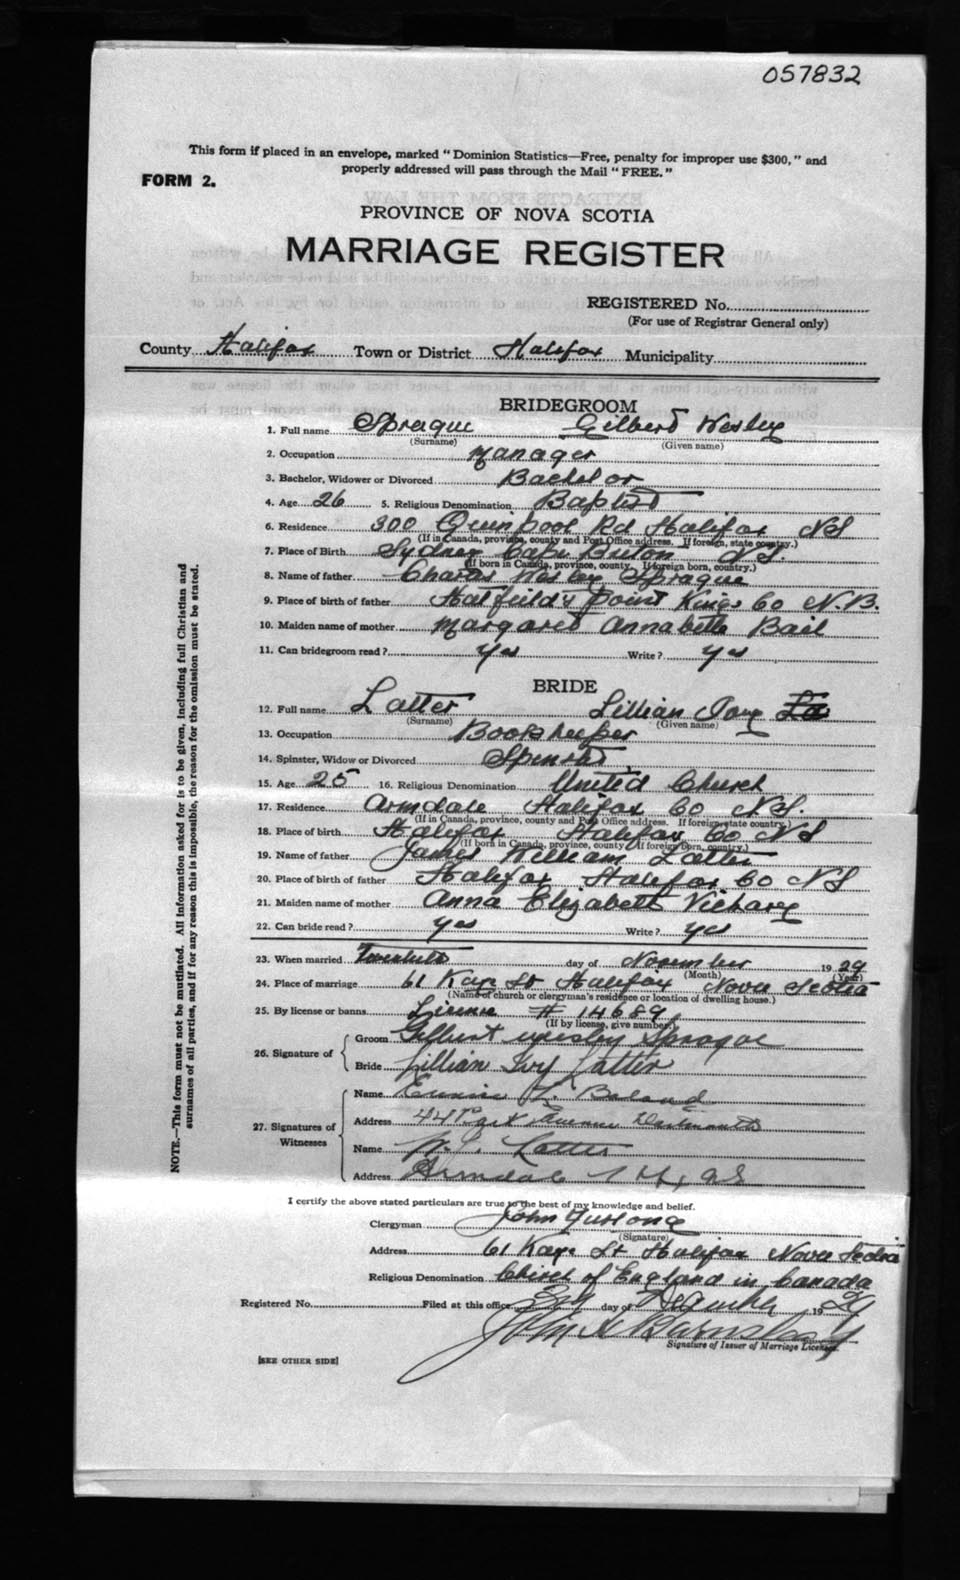 057832
This form if placed in an envelope, marked "Dominion Statistics—Free, penalty for improper use $300," and
properly addressed will pass through the Mail "FREE."
FORM 2.
PROVINCE OF NOVA SCOTIA
MARRIAGE REGISTER
REGISTERED No.
(For use of Registrar General only)
County Halifax Town or District Halifax Municipality
BRIDEGROOM
1. Full name Sprague Gilbert Wesley
(Surname) (Given name)
2. Occupation Manager
3. Bachelor, Widower or Divorced Bachelor
4. Age 26 5. Religious Denomination Baptist
6. Residence 300 Quinpool Rd Halifax NS
(If in Canada, province, county and Post Office address. If foreign, state country.)
7. Place of Birth Sydney Cape Breton N.S.
(If born in Canada, province, county. If foreign born, country.)
8. Name of father Charles Wesley Sprague
9. Place of birth of father Hatfield's Point Kings Co N.B.
10. Maiden name of mother Margaret Annabelle Bail
11. Can bridegroom read? yes Write? yes
BRIDE
12. Full name Latter Lillian Ivy La
(Surname) (Given name)
13. Occupation Bookkeeper
14. Spinster, Widow or Divorced Spinster
15. Age 25 16. Religious Denomination United Church
17. Residence Armdale Halifax Co N.S.
(If in Canada, province, county and Post Office address. If foreign state country.)
18. Place of birth Halifax Halifax Co NS
(If born in Canada, province, county. If foreign born, country.)
19. Name of father James William Latter
20. Place of birth of father Halifax Halifax Co NS
21. Maiden name of mother Anna Elizabeth Vichary
22. Can bride read? yes Write? yes
23. When married Twentieth day of November 1929
(Month) (Year)
24. Place of marriage 61 Kaye St Halifax Nova Scotia
(Name of church or clergyman's residence or location of dwelling house.)
25. By license or banns License # 14689
(If by license, give number)
26. Signature of
Groom Gilbert Wesley Sprague
Bride Lillian Ivy Latter
27. Signatures of Witnesses
Name L.
Address Dartmouth
Name Latter
Address Armdale
I certify the above stated particulars are true to the best of my knowledge and belief.
Clergyman John Furlong
(Signature)
Address 61 Kaye St Halifax Nova Scotia
Religious Denomination Church of England in Canada
Registered No. Filed at this office 3rd day of December 1929
Signature of Issuer of Marriage Licenses
[SEE OTHER SIDE]
NOTE.—This form must not be mutilated. All information asked for is to be given, including full Christian and
surnames of all parties, and if for any reason this is impossible, the reason for the omission must be stated.